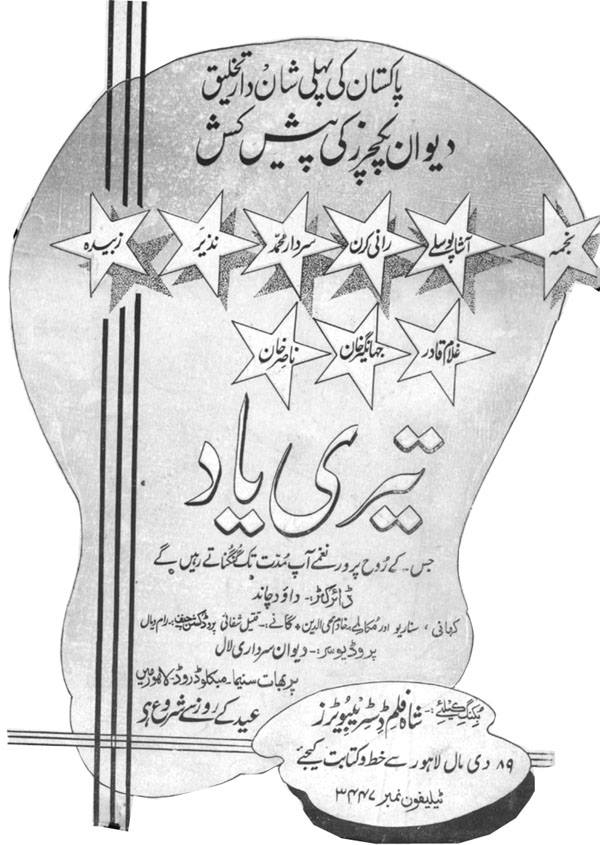 پاکستان کی پہلی شان دار تخلیق
دیوان پکچرز کی پیش کش
نجمہ
آشا پوسلے
رانی کرن
سردار محمد
نذیر
زبیدہ
غلام قادر
جہانگیر خان
ناصر خان
تیری یاد
جس۔ کے رُوح پرور نغمے آپ مُدّت تک گُنگناتے رہیں گے
ڈائرکٹر:۔ داؤد چاند
کہانی ، سناریو اور مُکالمے:۔ خادم محی الدین + گانے:۔ قتیل شفائی پروڈکشن چیف:۔ رام یال
پروڈیوسر:۔ دیوان سرداری لال
پربھات سنیما۔ میکلوڈ روڈ۔ لاہور میں
عید کے روز سے شروع ہے
بُکنگ کیلئے:۔ شاہ فلمز ڈسٹری بیوٹرز
۸۹ دی مال لاہور سے خط و کتابت کیجئے
ٹیلیفون نمبر ۳۴۴۷